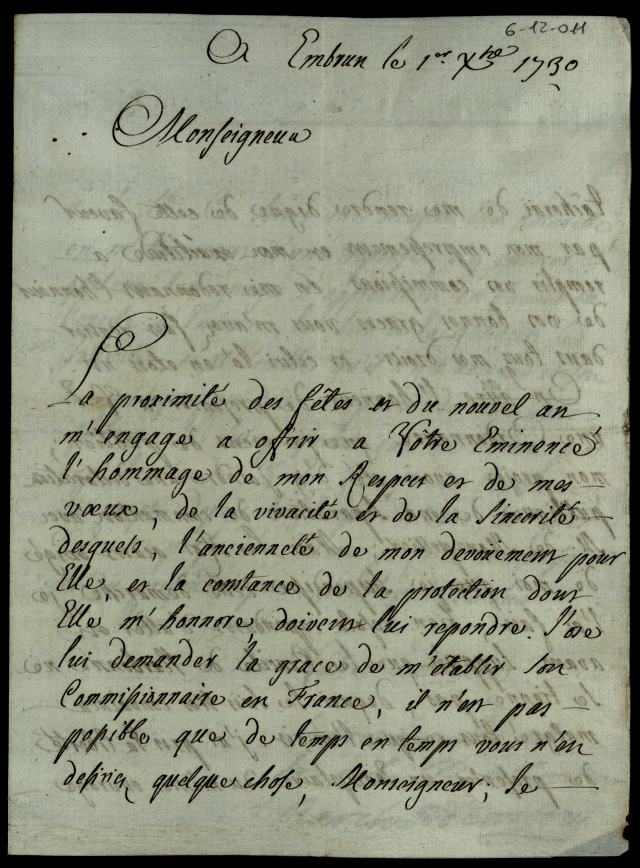 6-12-011
A Embrun le 1er Xbre 1730
Monseigneur
La proximité des fêtes et du nouvel an
m'engage a offrir a Votre Eminence
l'hommage de mon Respect et de mes
vœux, de la vivacité et de la Sincerité
desquels, l'ancienneté de mon devouement pour
Elle, et la constance de la protection dont
Elle m'honnore, doivent lui repondre. J'ose
lui demander la grace de m'etablir Son
Commissionnaire en France, il n'est pas
possible que de temps en temps vous n'en
desiriez quelque chose, Monseigneur, je